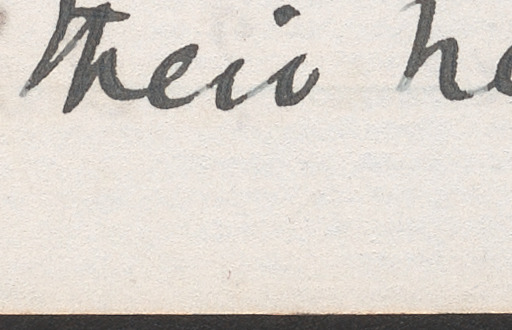 their he